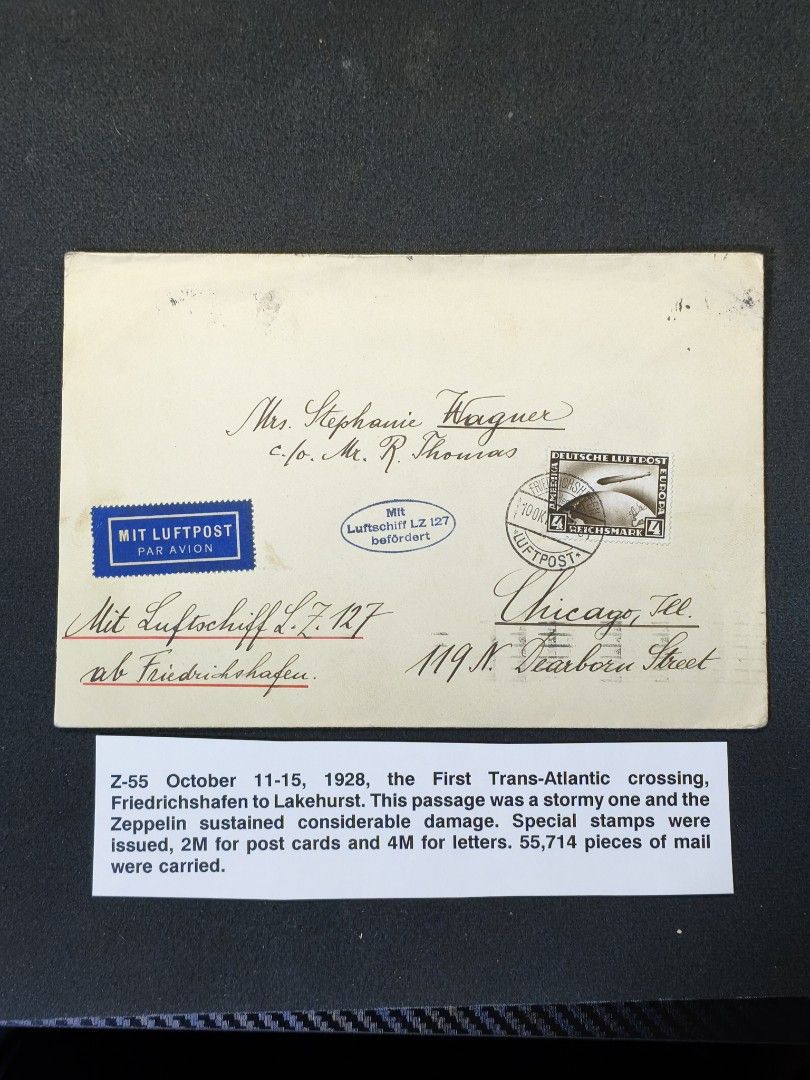 Mrs. Stephanie Wagner
c./o. Mr. R. Thomas
DEUTSCHE LUFTPOST
AMERIKA
EUROPA
4 REICHSMARK 4
LUFTPOST
MIT LUFTPOST
PAR AVION
Mit
Luftschiff LZ 127
befördert
Mit Luftschiff L.Z. 127
ab Friedrichshafen.
Chicago, Ill.
119 N. Dearborn Street
Z-55 October 11-15, 1928, the First Trans-Atlantic crossing,
Friedrichshafen to Lakehurst. This passage was a stormy one and the
Zeppelin sustained considerable damage. Special stamps were
issued, 2M for post cards and 4M for letters. 55,714 pieces of mail
were carried.